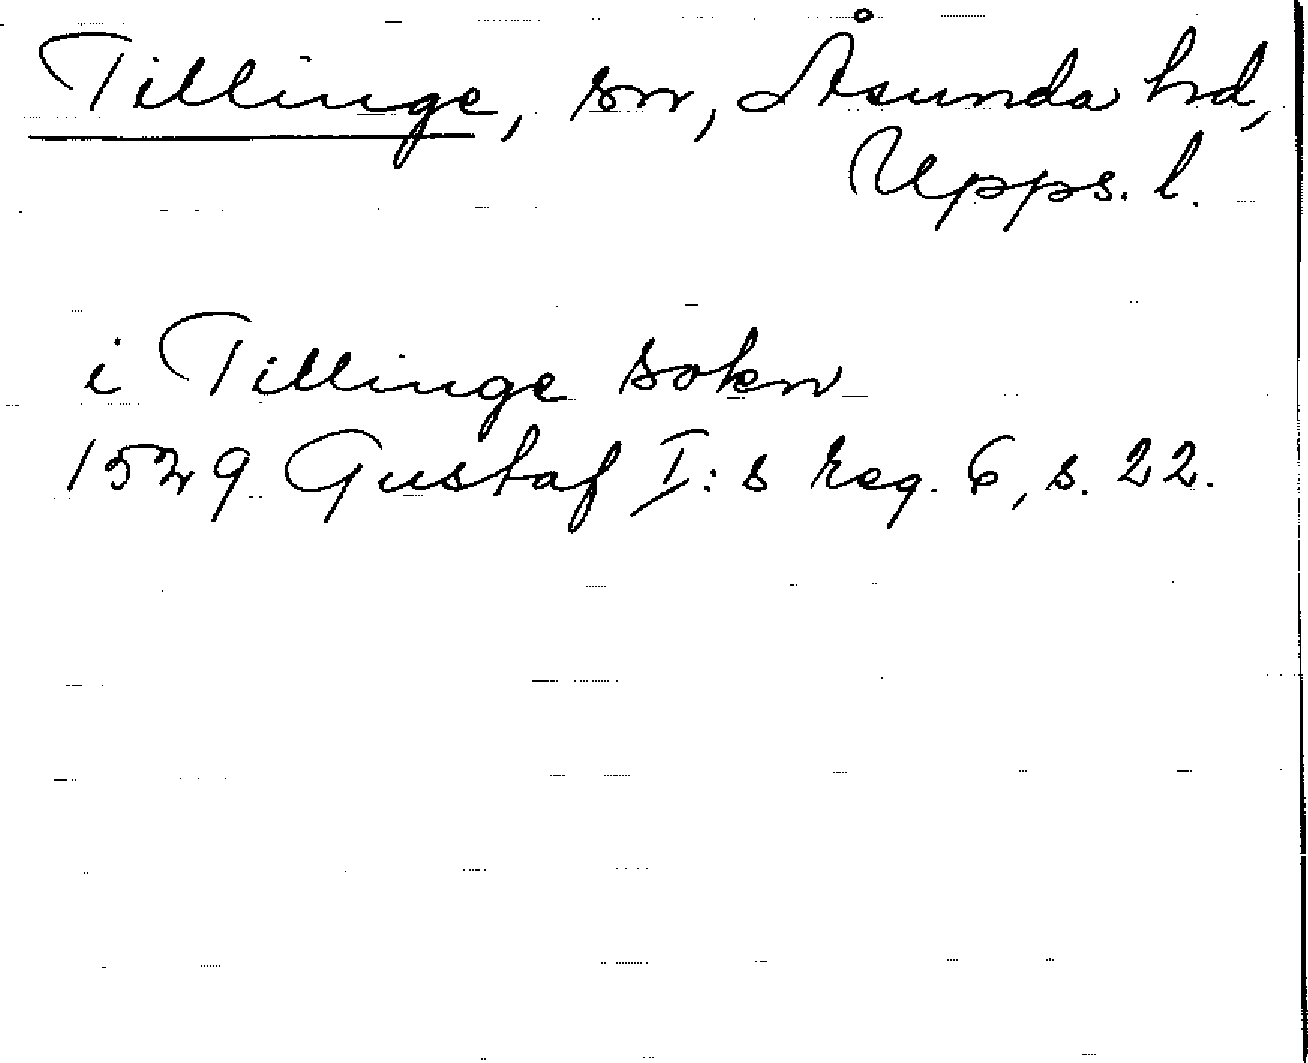 Tillinge, sn, Åsunda hd,
Upps. l.
i Tillinge sokn
1529 Gustaf I:s reg. 6, s. 22.